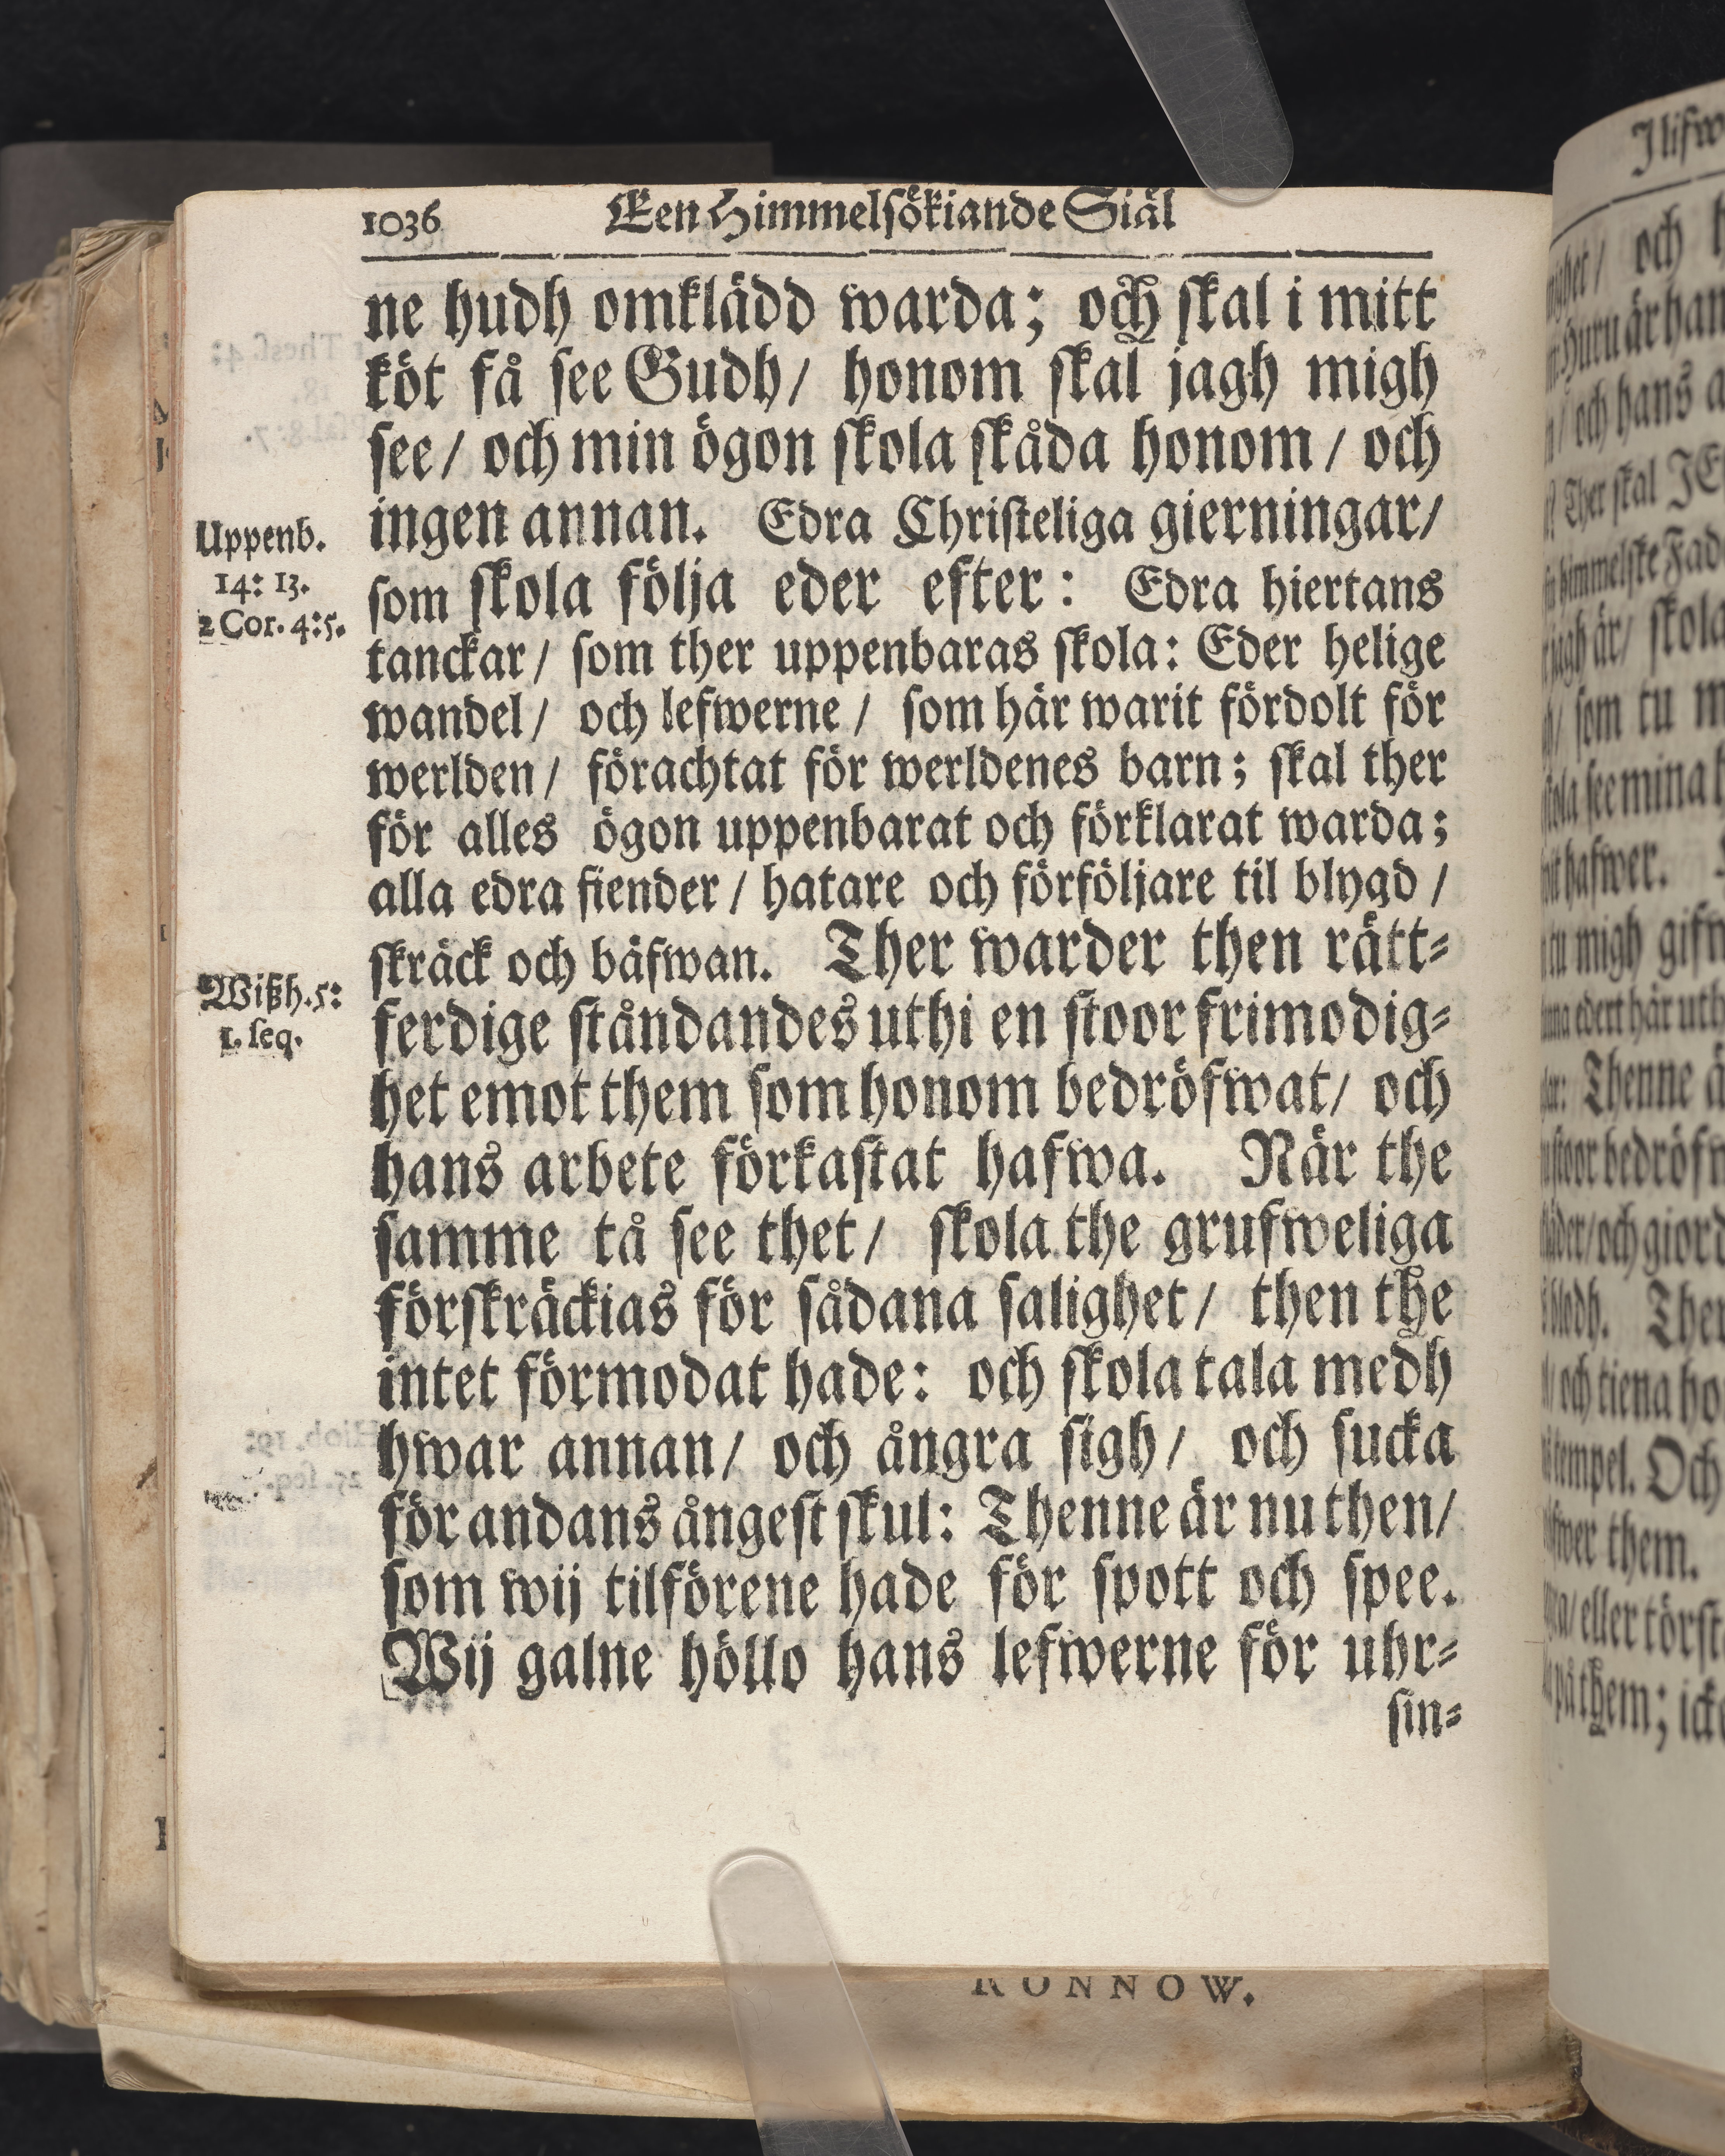 1036
Een Himmelsökiande Siäl
ne hudh omklädd warda; och skal i mitt
köt få see Gudh/ honom skal jagh migh
see/ och min ögon skola skåda honom/ och
ingen annan. Edra Christeliga gierningar/
Uppenb.
14: 13.
2 Cor. 4:5.
som skola följa eder efter: Edra hiertans
tanckar/ som ther uppenbaras skola: Eder helige
wandel/ och lefwerne/ som här warit fördolt för
werlden/ förachtat för werldenes barn; skal ther
för alles ögon uppenbarat och förklarat warda;
alla edra fiender/ hatare och förföljare til blygd/
skräck och bäfwan. Ther warder then rätt-
Wißh. 5:
1. seq.
ferdige ståndandes uthi en stoor frimodig-
het emot them som honom bedröfwat/ och
hans arbete förkastat hafwa. När the
samme tå see thet/ skola the grufweliga
förskräckias för sådana salighet/ then the
intet förmodat hade: och skola tala medh
hwar annan/ och ångra sigh/ och sucka
för andans ångest skul: Thenne är nu then/
som wij tilförene hade för spott och spee.
Wij galne höllo hans lefwerne för uhr-
sin-
RONNOW.
och
Thenne
och tiena
tempel. Och
them.
eller
them;